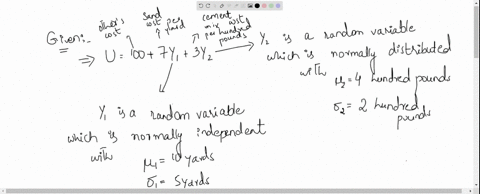 Given:-
other's cost
sand cost per yard
cement mix cost per hundred pounds
⇒ U = 100 + 7Y₁ + 3Y₂ → Y₂ is a random variable
which is normally distributed
with μ₂ = 4 hundred pounds
σ₂ = 2 hundred pounds
Y₁ is a random variable
which is normally independent
with
μ₁ = 10 yards
σ₁ = 5 yards